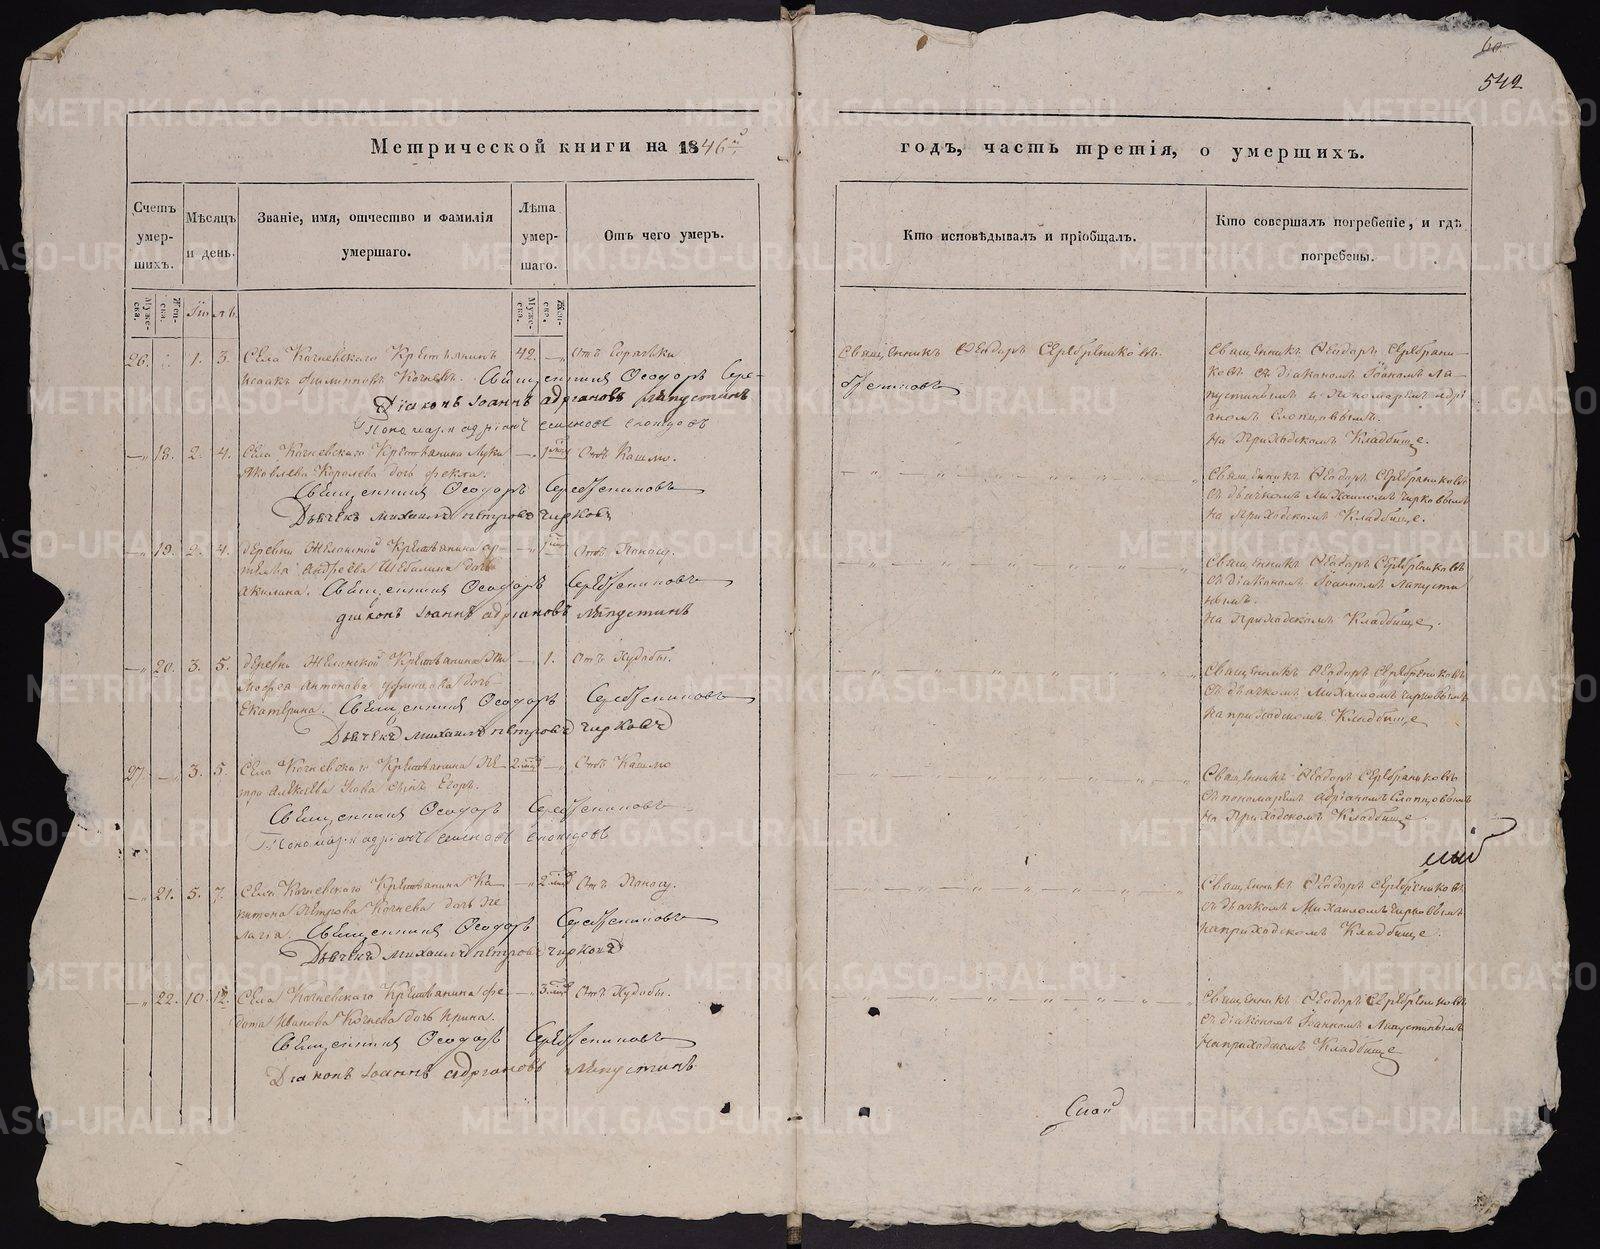 542
Метрической книги на 1846й
годъ, часть третія, о умершихъ.
Счетъ умер-шихъ.
Мѣсяцъ и день.
Званіе, имя, отчество и фамилія умершаго.
Лѣта умер-шаго.
Отъ чего умеръ.
Кто исповѣдывалъ и пріобщалъ.
Кто совершалъ погребеніе, и гдѣ погребены.
Муже-ска.
Жен-ска.
Іюль
Муже-ска.
Жен-ска.
26. 1. 3. Села Кочневскаго Крестьянинъ 42. Отъ Горячки
Исаакъ Филиповъ Кочневъ. Священникъ Ѳеодоръ Сере-
бренниковъ
Діаконъ Іоаннъ Адріановъ Ляпустинъ
Пономарь Адріанъ Слопцовъ
Священникъ Ѳеодоръ Серебрениковъ.
Священникъ Ѳеодоръ Серебрени-
ковъ съ діакономъ Іоанномъ Ля-
пустинымъ и Пономаремъ Адрі
аномъ Слопцовымъ.
На Приходскомъ Кладбище.
18. 2. 4. Села Кочневскаго Крестьянина Луки Отъ Кашлю.
Яковлева Королева дочь Фекла.
Священникъ Ѳеодоръ Серебренниковъ
Дьячекъ Михаилъ Петровъ Чирковъ
Священникъ Ѳеодоръ Серебрениковъ
съ дьячкомъ Михаиломъ Чирковымъ
На Приходскомъ Кладбище.
19. 2. 4. Деревни Жилонской Крестьянина Ар- Отъ Поносу.
Андреева Шебалина дочь
Акилина. Священникъ Ѳеодоръ Серебренниковъ
Діаконъ Іоаннъ Адріановъ Ляпустинъ
Священникъ Ѳеодоръ Серебрениковъ
съ діакономъ Іоанномъ Ляпусти
нымъ.
На Приходскомъ Кладбище.
20. 3. 5. Деревни Жиланской Крестьянина Ти 1. Отъ Худобы.
мофея Антонова дочь
Екатерина. Священникъ Ѳеодоръ Серебренниковъ
Дьячекъ Михаилъ Петровъ Чирковъ
Священникъ Ѳеодоръ Серебрениковъ
съ дьячкомъ Михаиломъ Чирковымъ
на приходскомъ Кладбище
27. 3. 5. Села Кочневскаго Крестьянина Пе- Отъ Кашлю
тра Алексѣева сынъ Егоръ.
Священникъ Ѳеодоръ Серебренниковъ
Пономарь Адріанъ Слопцовъ
Священникъ Ѳеодоръ Серебрениковъ
съ пономаремъ Адріаномъ Слопцовымъ
На Приходскомъ Кладбище
21. 5. 7. Села Кочневскаго Крестьянина Ка- Отъ Поносу.
питона Петрова Кочнева дочь Пе
лагія. Священникъ Ѳеодоръ Серебренниковъ
Дьячекъ Михаилъ Петровъ Чирковъ
Священникъ Ѳеодоръ Серебрениковъ
съ дьячкомъ Михаиломъ Чирковымъ
на приходскомъ Кладбище.
22. 10. 12. Села Кочневскаго Крестьянина Фе- Отъ Худобы.
дота Иванова Кочнева дочь Ирина.
Священникъ Ѳеодоръ Серебренниковъ
Діаконъ Іоаннъ Адріановъ Ляпустинъ
Священникъ Ѳеодоръ Серебрениковъ
съ діакономъ Іоанномъ Ляпустинымъ
На приходскомъ Кладбище
METRIKI.GASO-URAL.RU